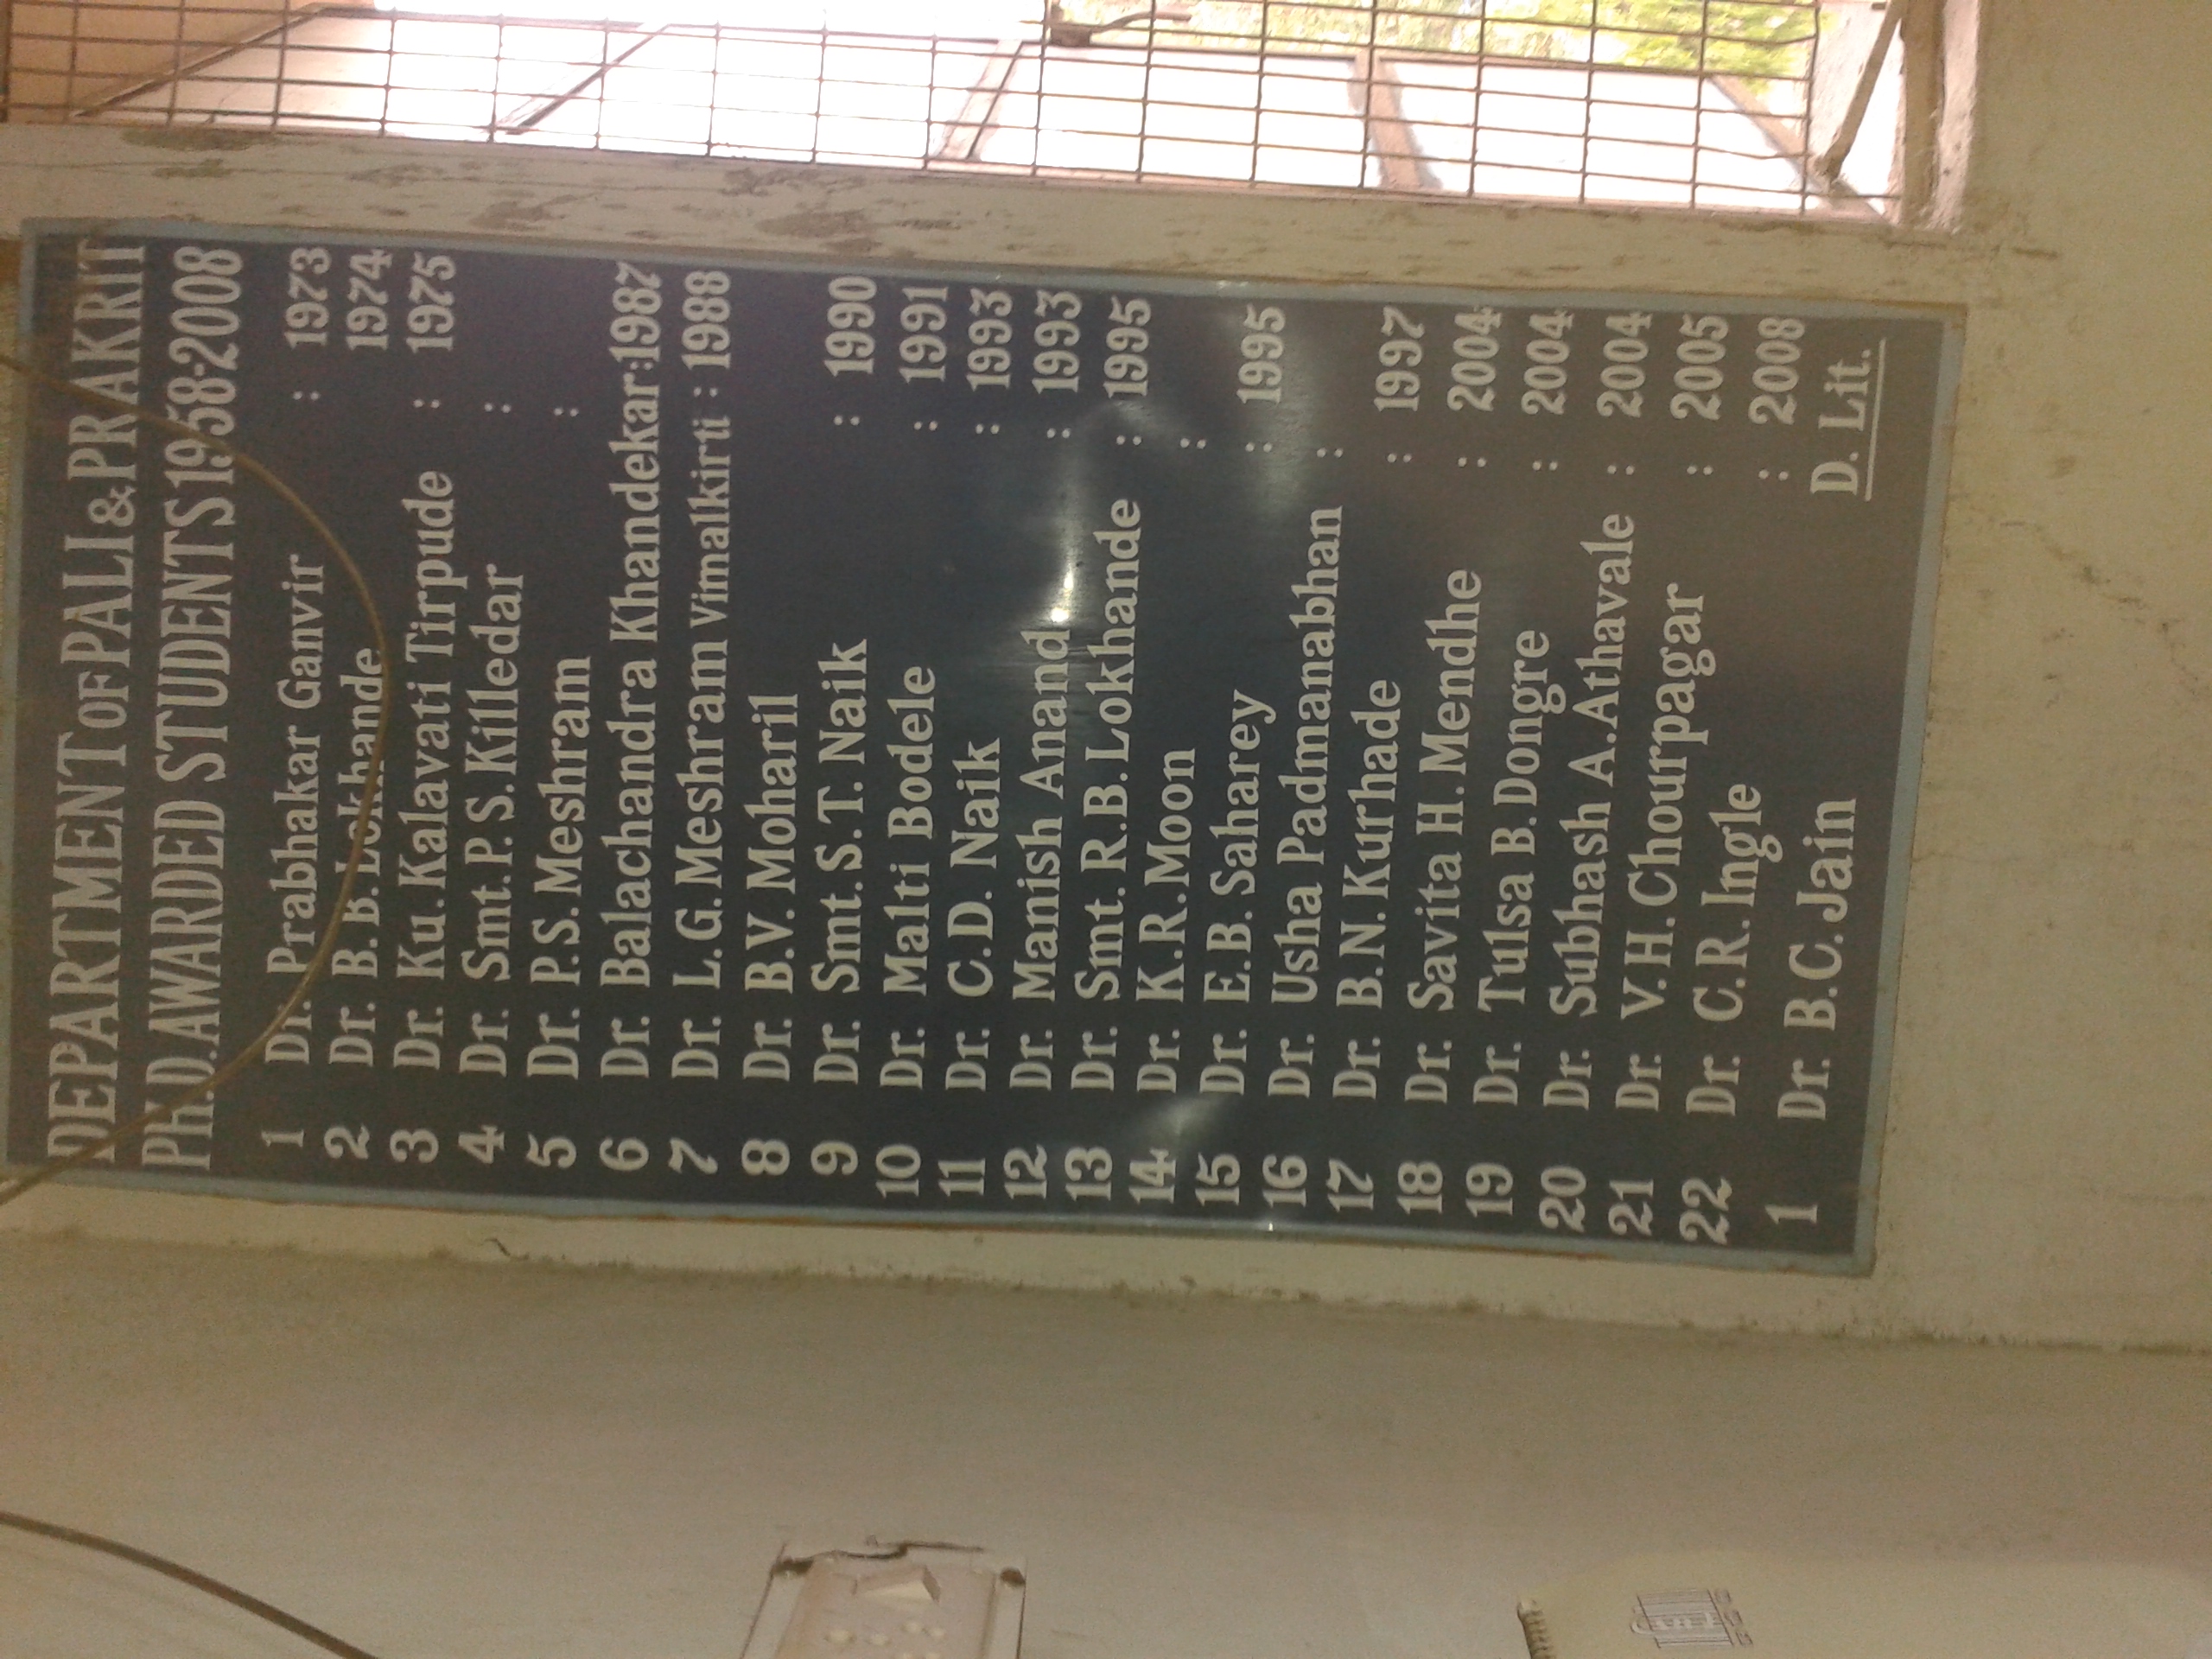 DEPARTMENT OF PALI & PRAKRIT
PH.D. AWARDED STUDENTS 1958-2008
1 Dr. Prabhakar Ganvir : 1973
2 Dr. B. B. Lokhande 1974
3 Dr. Ku. Kalavati Tirpude : 1975
4 Dr. Smt. P. S. Killedar :
5 Dr. P. S. Meshram :
6 Dr. Balachandra Khandekar : 1987
7 Dr. L. G. Meshram Vimalkirti : 1988
8 Dr. B.V. Moharil
9 Dr. Smt. S. T. Naik : 1990
10 Dr. Malti Bodele : 1991
11 Dr. C.D. Naik : 1993
12 Dr. Manish Anand : 1993
13 Dr. Smt. R.B. Lokhande : 1995
14 Dr. K.R. Moon :
15 Dr. E.B. Saharey : 1995
16 Dr. Usha Padmanabhan :
17 Dr. B.N. Kurhade : 1997
18 Dr. Savita H. Mendhe : 2004
19 Dr. Tulsa B. Dongre : 2004
20 Dr. Subhash A. Athavale : 2004
21 Dr. V. H. Chourpagar : 2005
22 Dr. C.R. Ingle : 2008
1 Dr. B.C. Jain D. Lit.